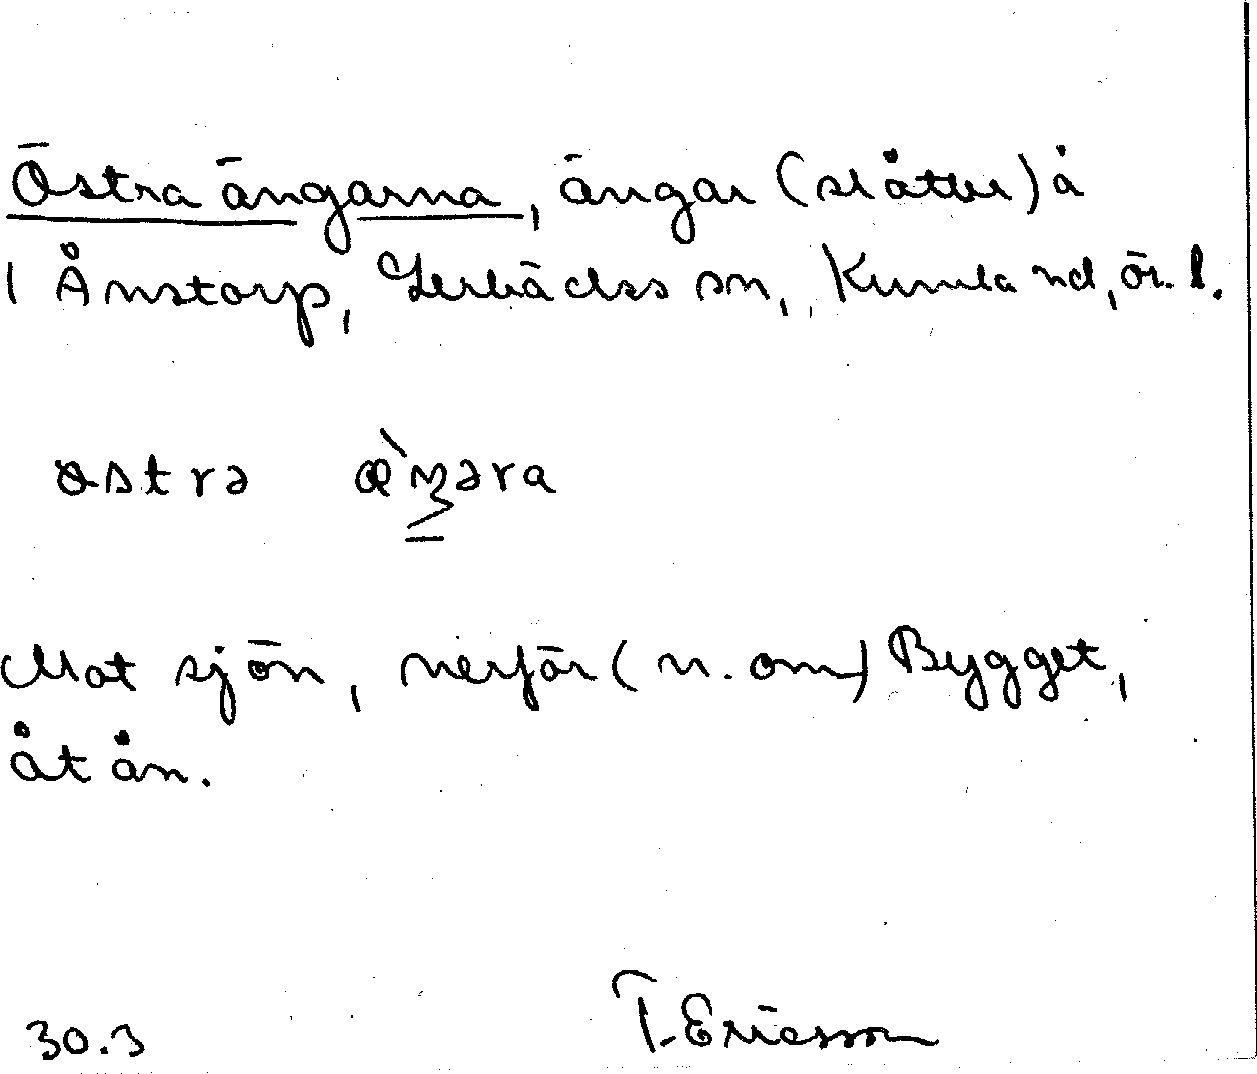 Östra ängarna, ängar (slåtter) å
1 Ånstorp, Lerbäcks sn, Kumla hd, ör. l.
östrə
Mot sjön, nerför (n. om) Bygget,
åt ån.
30.3 T. Ericsson